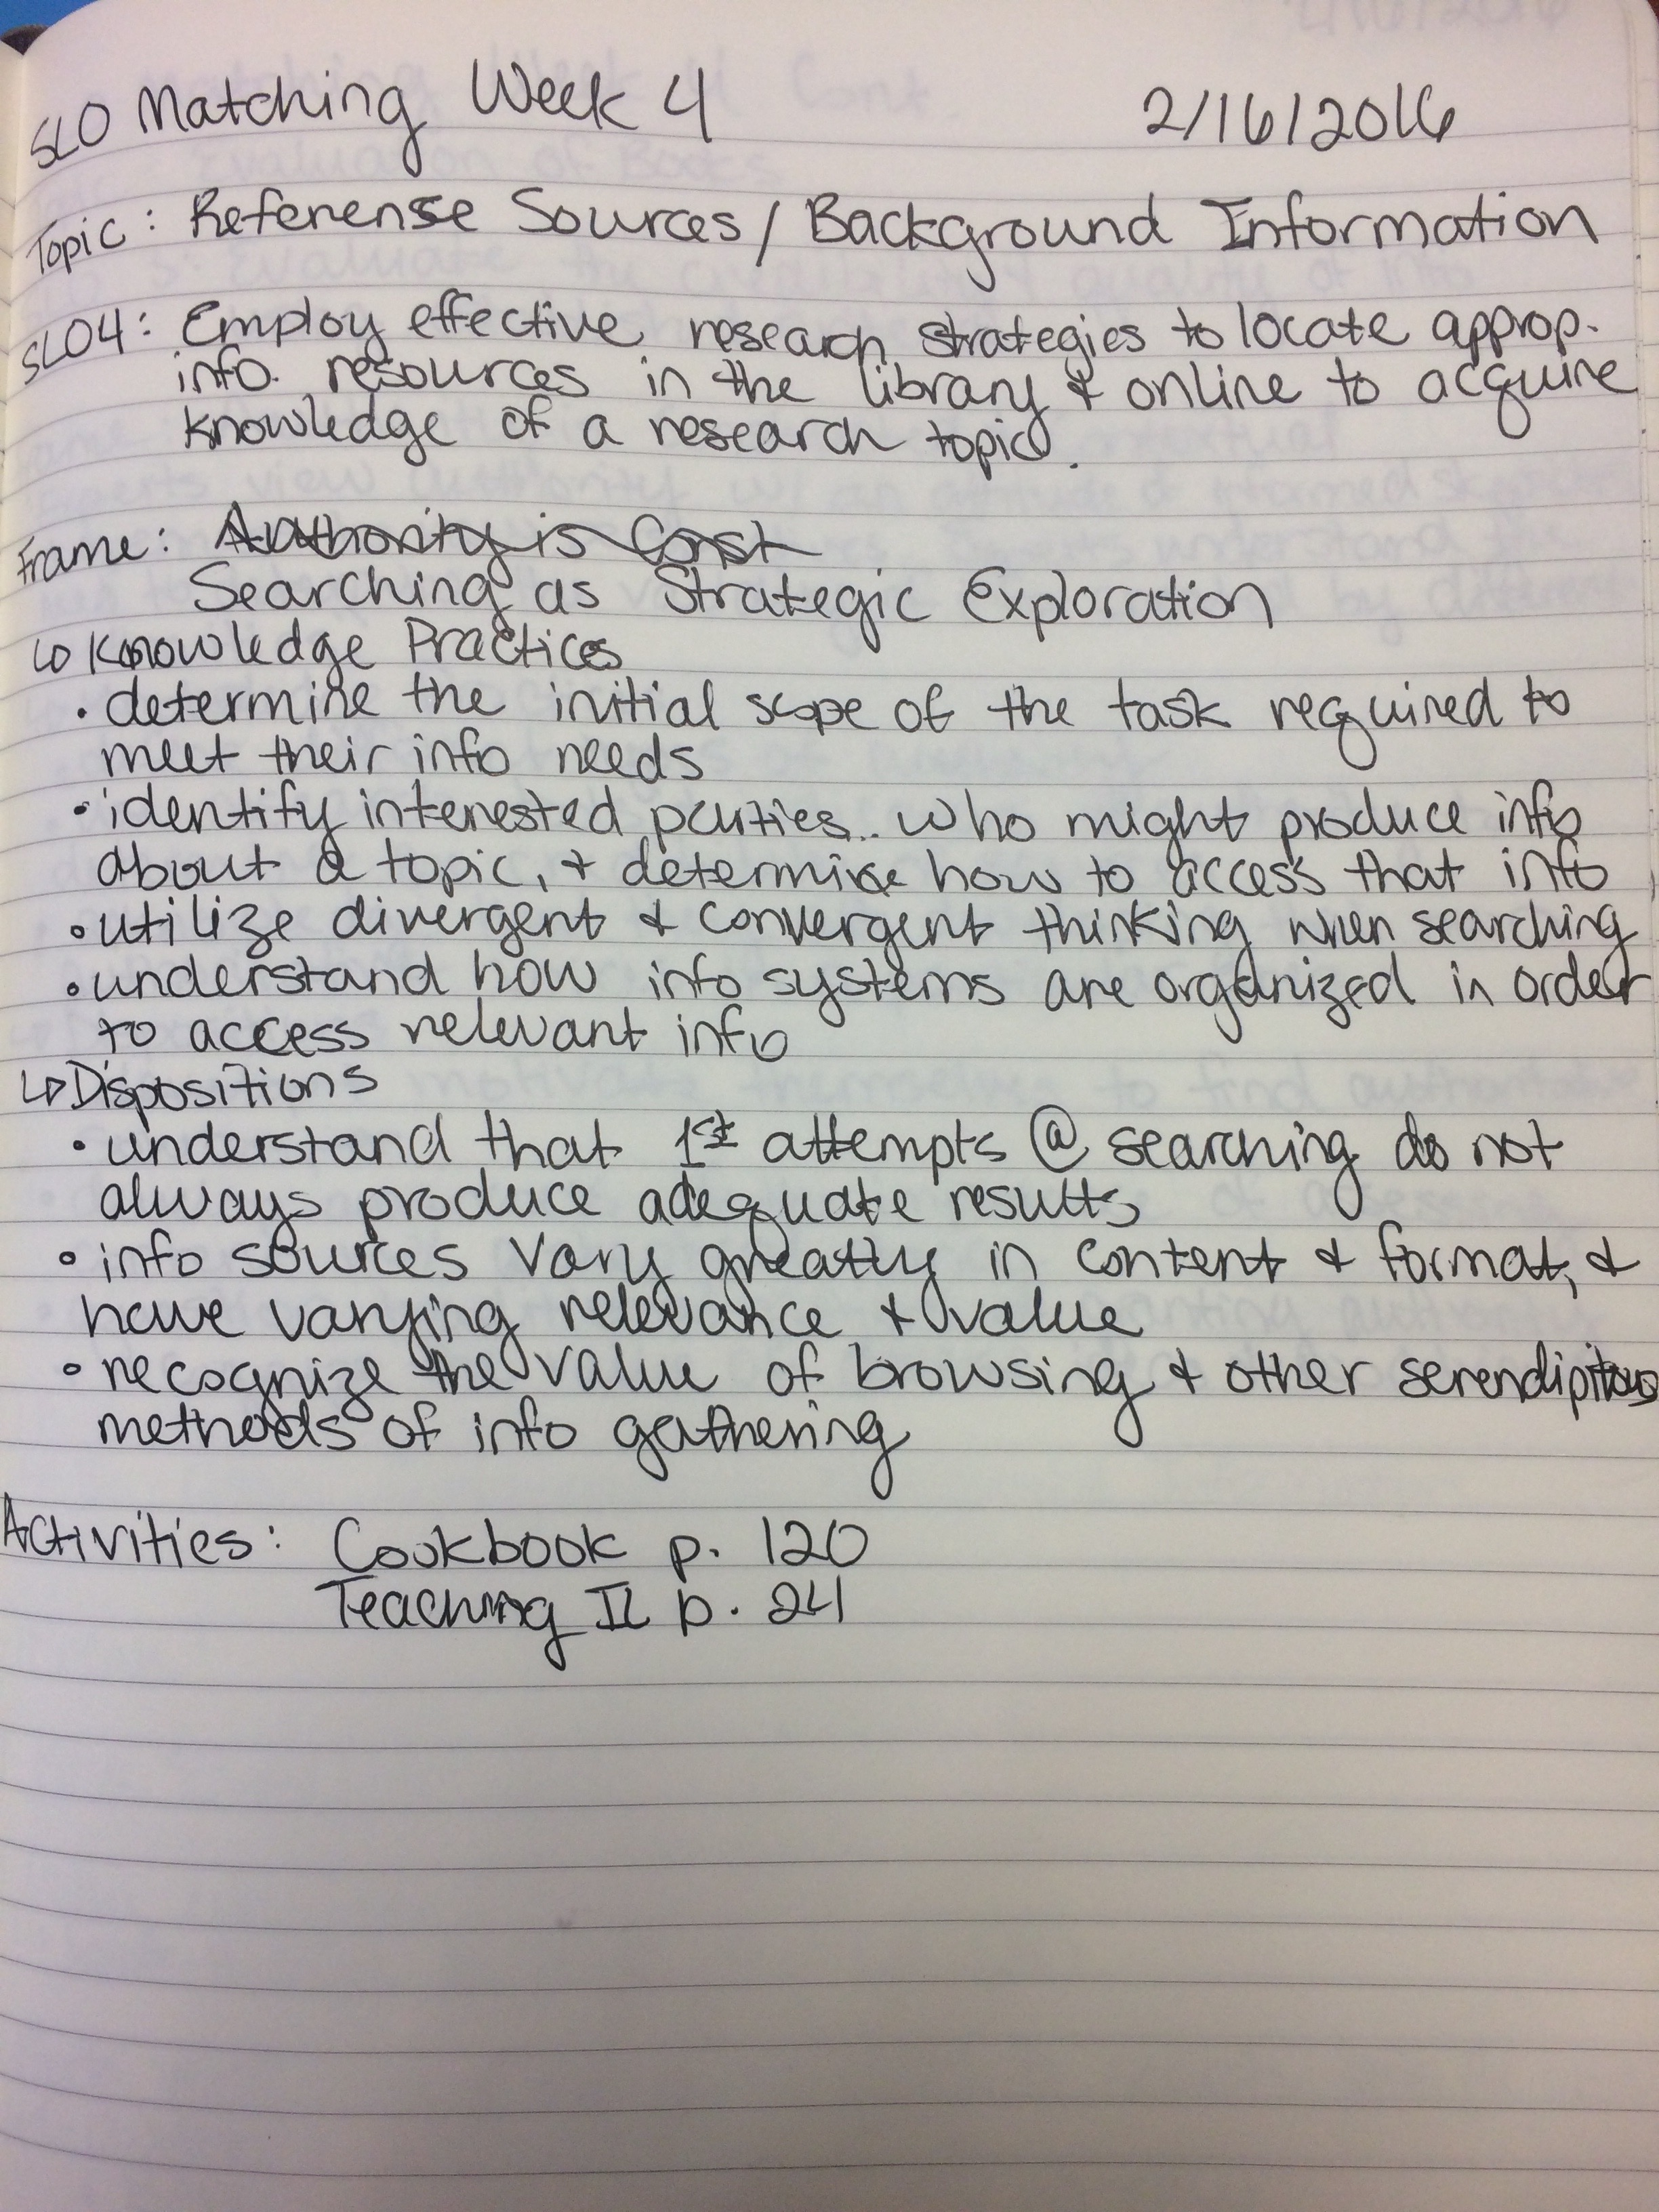 SLO Matching Week 4 2/16/2016
Topic: Referense Sources / Background Information
SLO4: Employ effective research strategies to locate approp.
info. resources in the library & online to acquire
knowledge of a research topic.
Frame: Authority is Const
Searching as Strategic Exploration
↳ Knowledge Practices
• determine the initial scope of the task required to
meet their info needs
• identify interested parties.. who might produce info
about a topic, & determine how to access that info
• utilize divergent & convergent thinking when searching
• understand how info systems are organized in order
to access relevant info
↳ Dispositions
• understand that 1st attempts @ searching do not
always produce adequate results
• info sources vary greatly in content & format, &
have varying relevance & value
• recognize the value of browsing & other serendipitous
methods of info gathering
Activities: Cookbook p. 120
Teaching IL p. 24